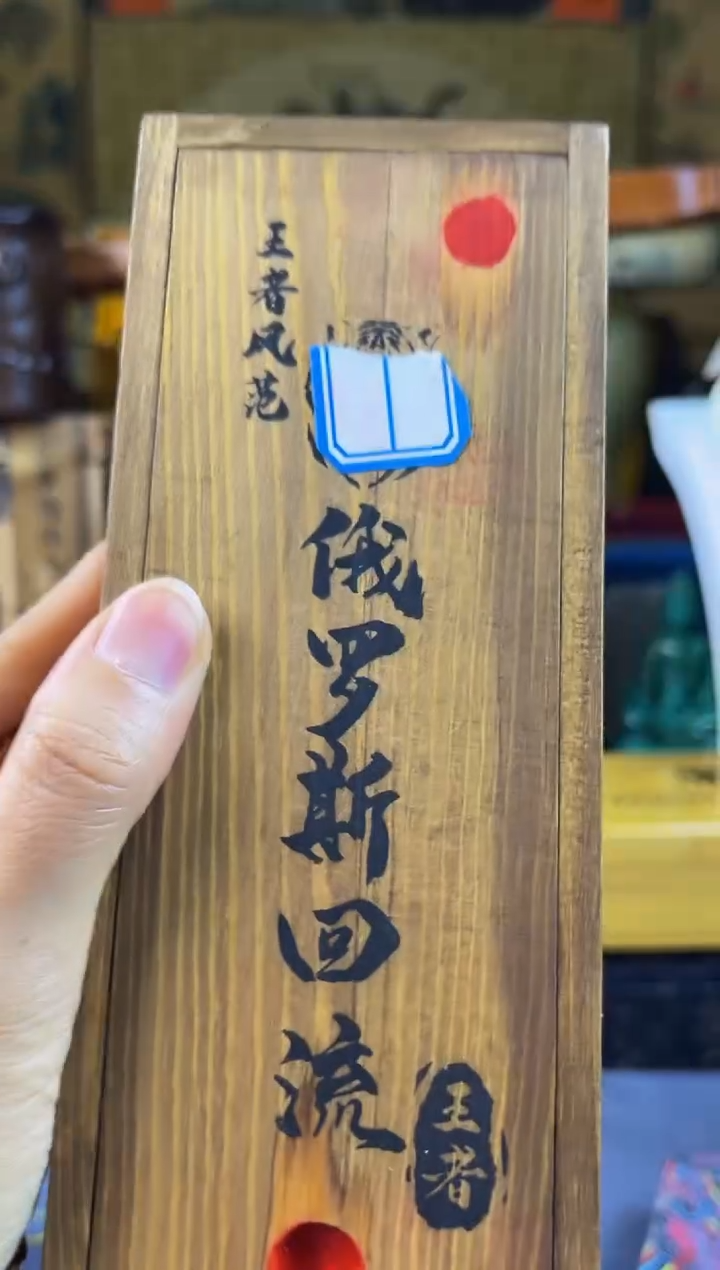 王者风范
俄罗斯回流
王者